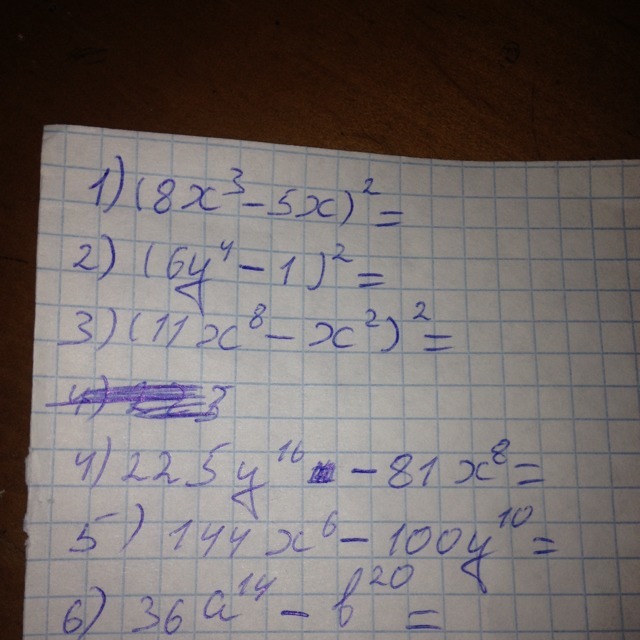 1) (8x³ - 5x)² =
2) (6y⁴ - 1)² =
3) (11x⁸ - x²)² =
4) 225y¹⁶ - 81x⁸ =
5) 144x⁶ - 100y¹⁰ =
6) 36a¹⁴ - b²⁰ =